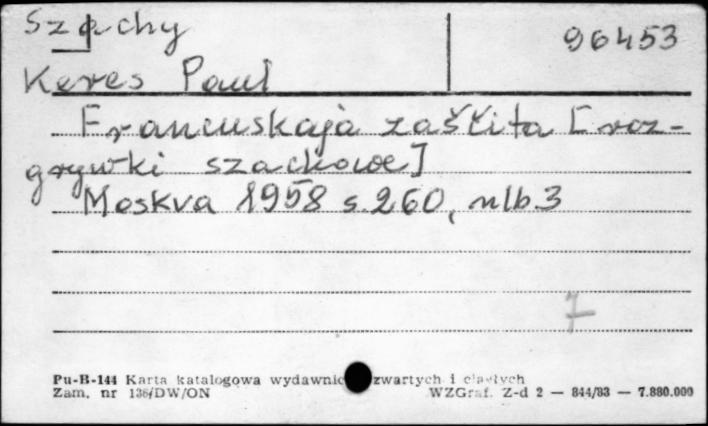 Szachy
96453
Keres Paul
Francuskaja zaščita [roz-
grywki szachowe]
Moskva 1958 s.260, nlb.3
7
Pu-B-144 Karta katalogowa wydawnic zwartych i ciągłych
Zam. nr 136/DW/ON WZGraf. Z-d 2 — 844/83 — 7.880.000